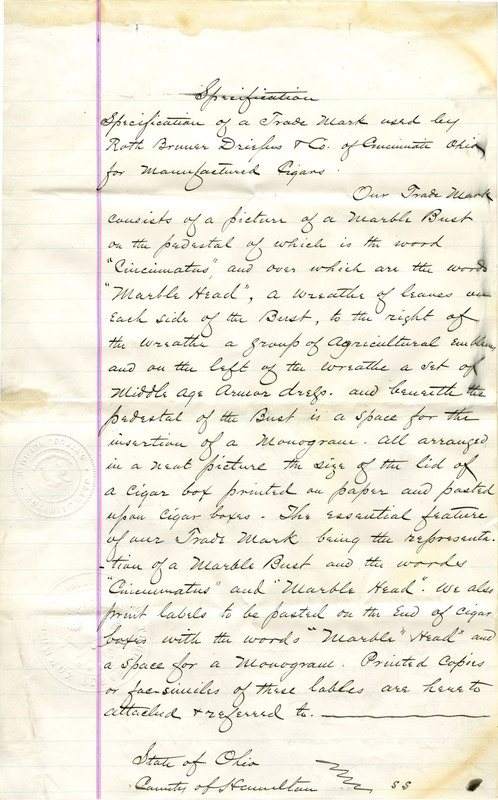 Specification
Specification of a Trade Mark used by
Roth Bruner Dreifus & Co. of Cincinnati Ohio
for Manufactured Cigars.
Our Trade Mark
consists of a picture of a Marble Bust
on the pedestal of which is the word
"Cincinnatus", and over which are the words
"Marble Head", a wreathe of leaves on
Each side of the Bust, to the right of
the wreathe a group of Agricultural Emblems
and on the left of the wreathe a set of
Middle Age Armor dress. and beneith the
pedestal of the Bust is a space for the
insertion of a Monogram. All arranged
in a neat picture the size of the lid of
a cigar box printed on paper and pasted
upon cigar boxes - The essential feature
of our Trade Mark being the representa-
-tion of a Marble Bust and the wordes
"Cincinnatus" and "Marble Head". We also
print labels to be pasted on the End of cigar
boxes with the words "Marble" Head" and
a space for a Monogram. Printed Copies
or fac-similes of these lables are here to
attached & referred to.
State of Ohio
County of Hamilton ss